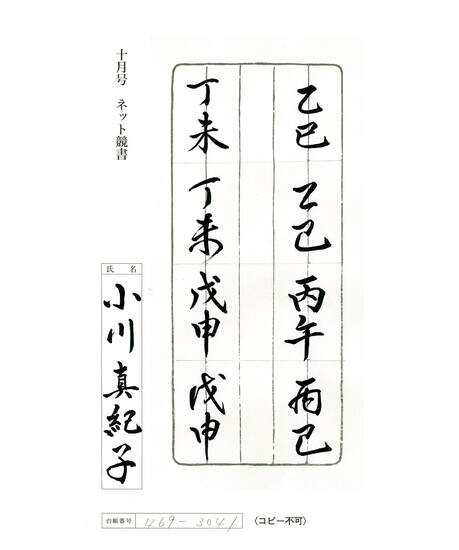 乙巳
乙巳
丙午
丙巳
丁未
丁未
戊申
戊申
十月号 ネット競書
氏名
小川真紀子
台帳番号 469-3041
(コピー不可)